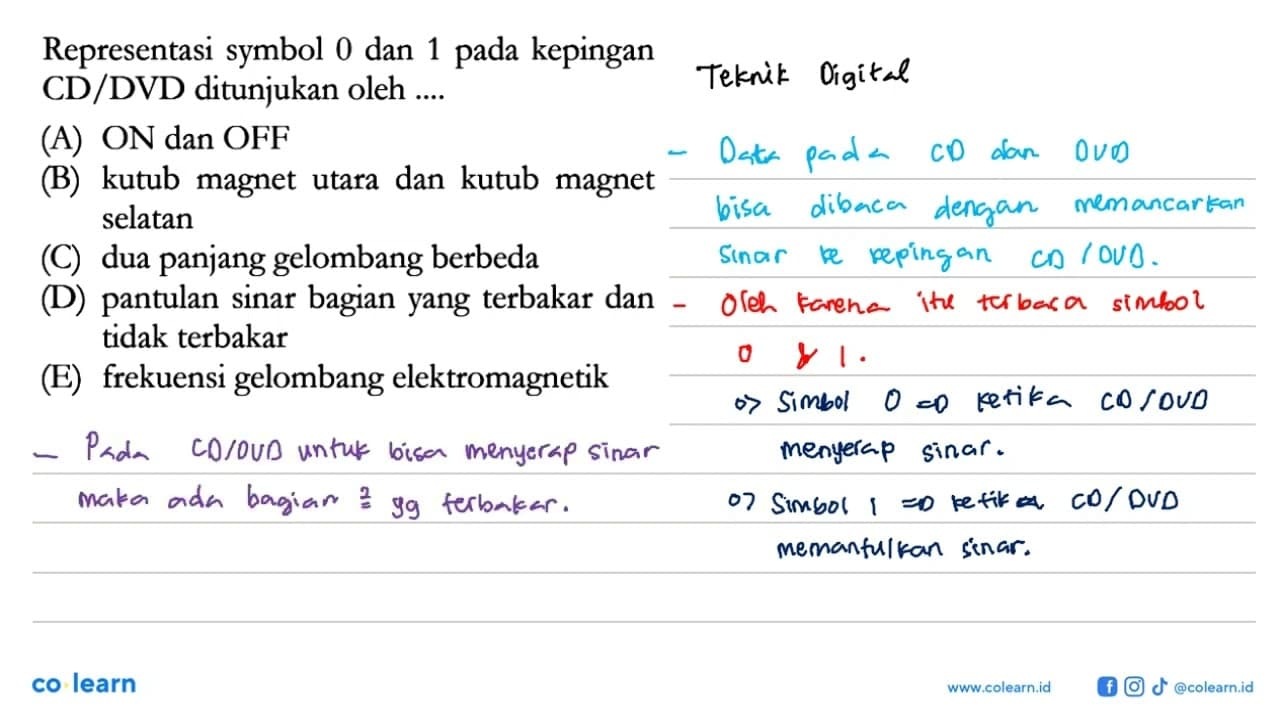 Representasi symbol 0 dan 1 pada kepingan
CD/DVD ditunjukan oleh ....
(A) ON dan OFF
(B) kutub magnet utara dan kutub magnet
selatan
(C) dua panjang gelombang berbeda
(D) pantulan sinar bagian yang terbakar dan
tidak terbakar
(E) frekuensi gelombang elektromagnetik
- Pada CD/DVD untuk bisa menyerap sinar
maka ada bagian 2 = yg terbakar.
Teknik Digital
- Data pada CD dan DVD
bisa dibaca dengan memancarkan
sinar ke kepingan CD / DVD.
- Oleh karena itu terbaca simbol
0 & 1.
=> Simbol 0 => ketika CD/DVD
menyerap sinar.
=> Simbol 1 => ketika CD/DVD
memantulkan sinar.
co learn
www.colearn.id
@colearn.id